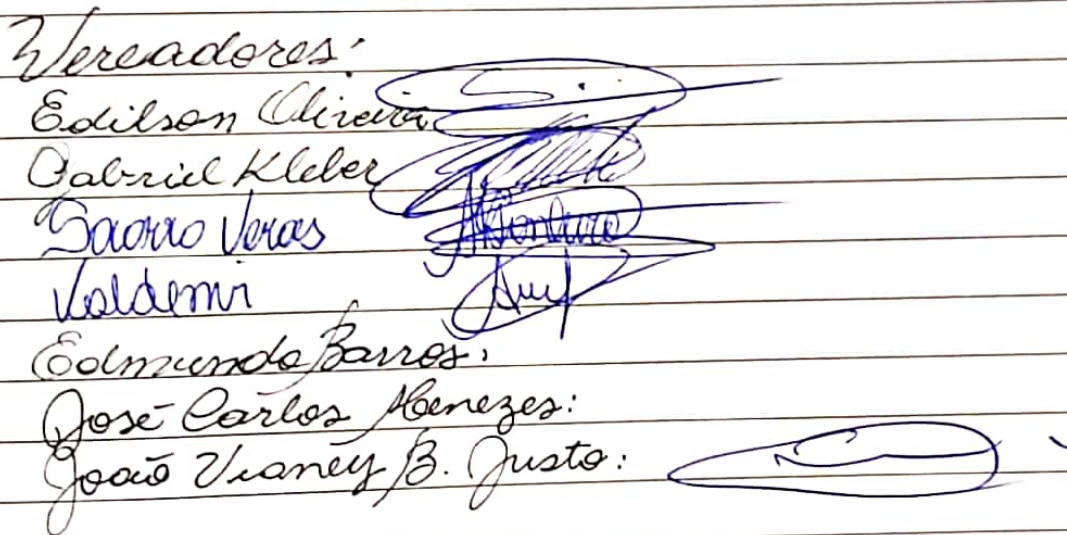 Vereadores:
Edilson Oliveira
Gabriel Kleber
Socorro Veras
Valdemir
Edmundo Barros:
José Carlos Menezes:
João Vianey B. Justo: